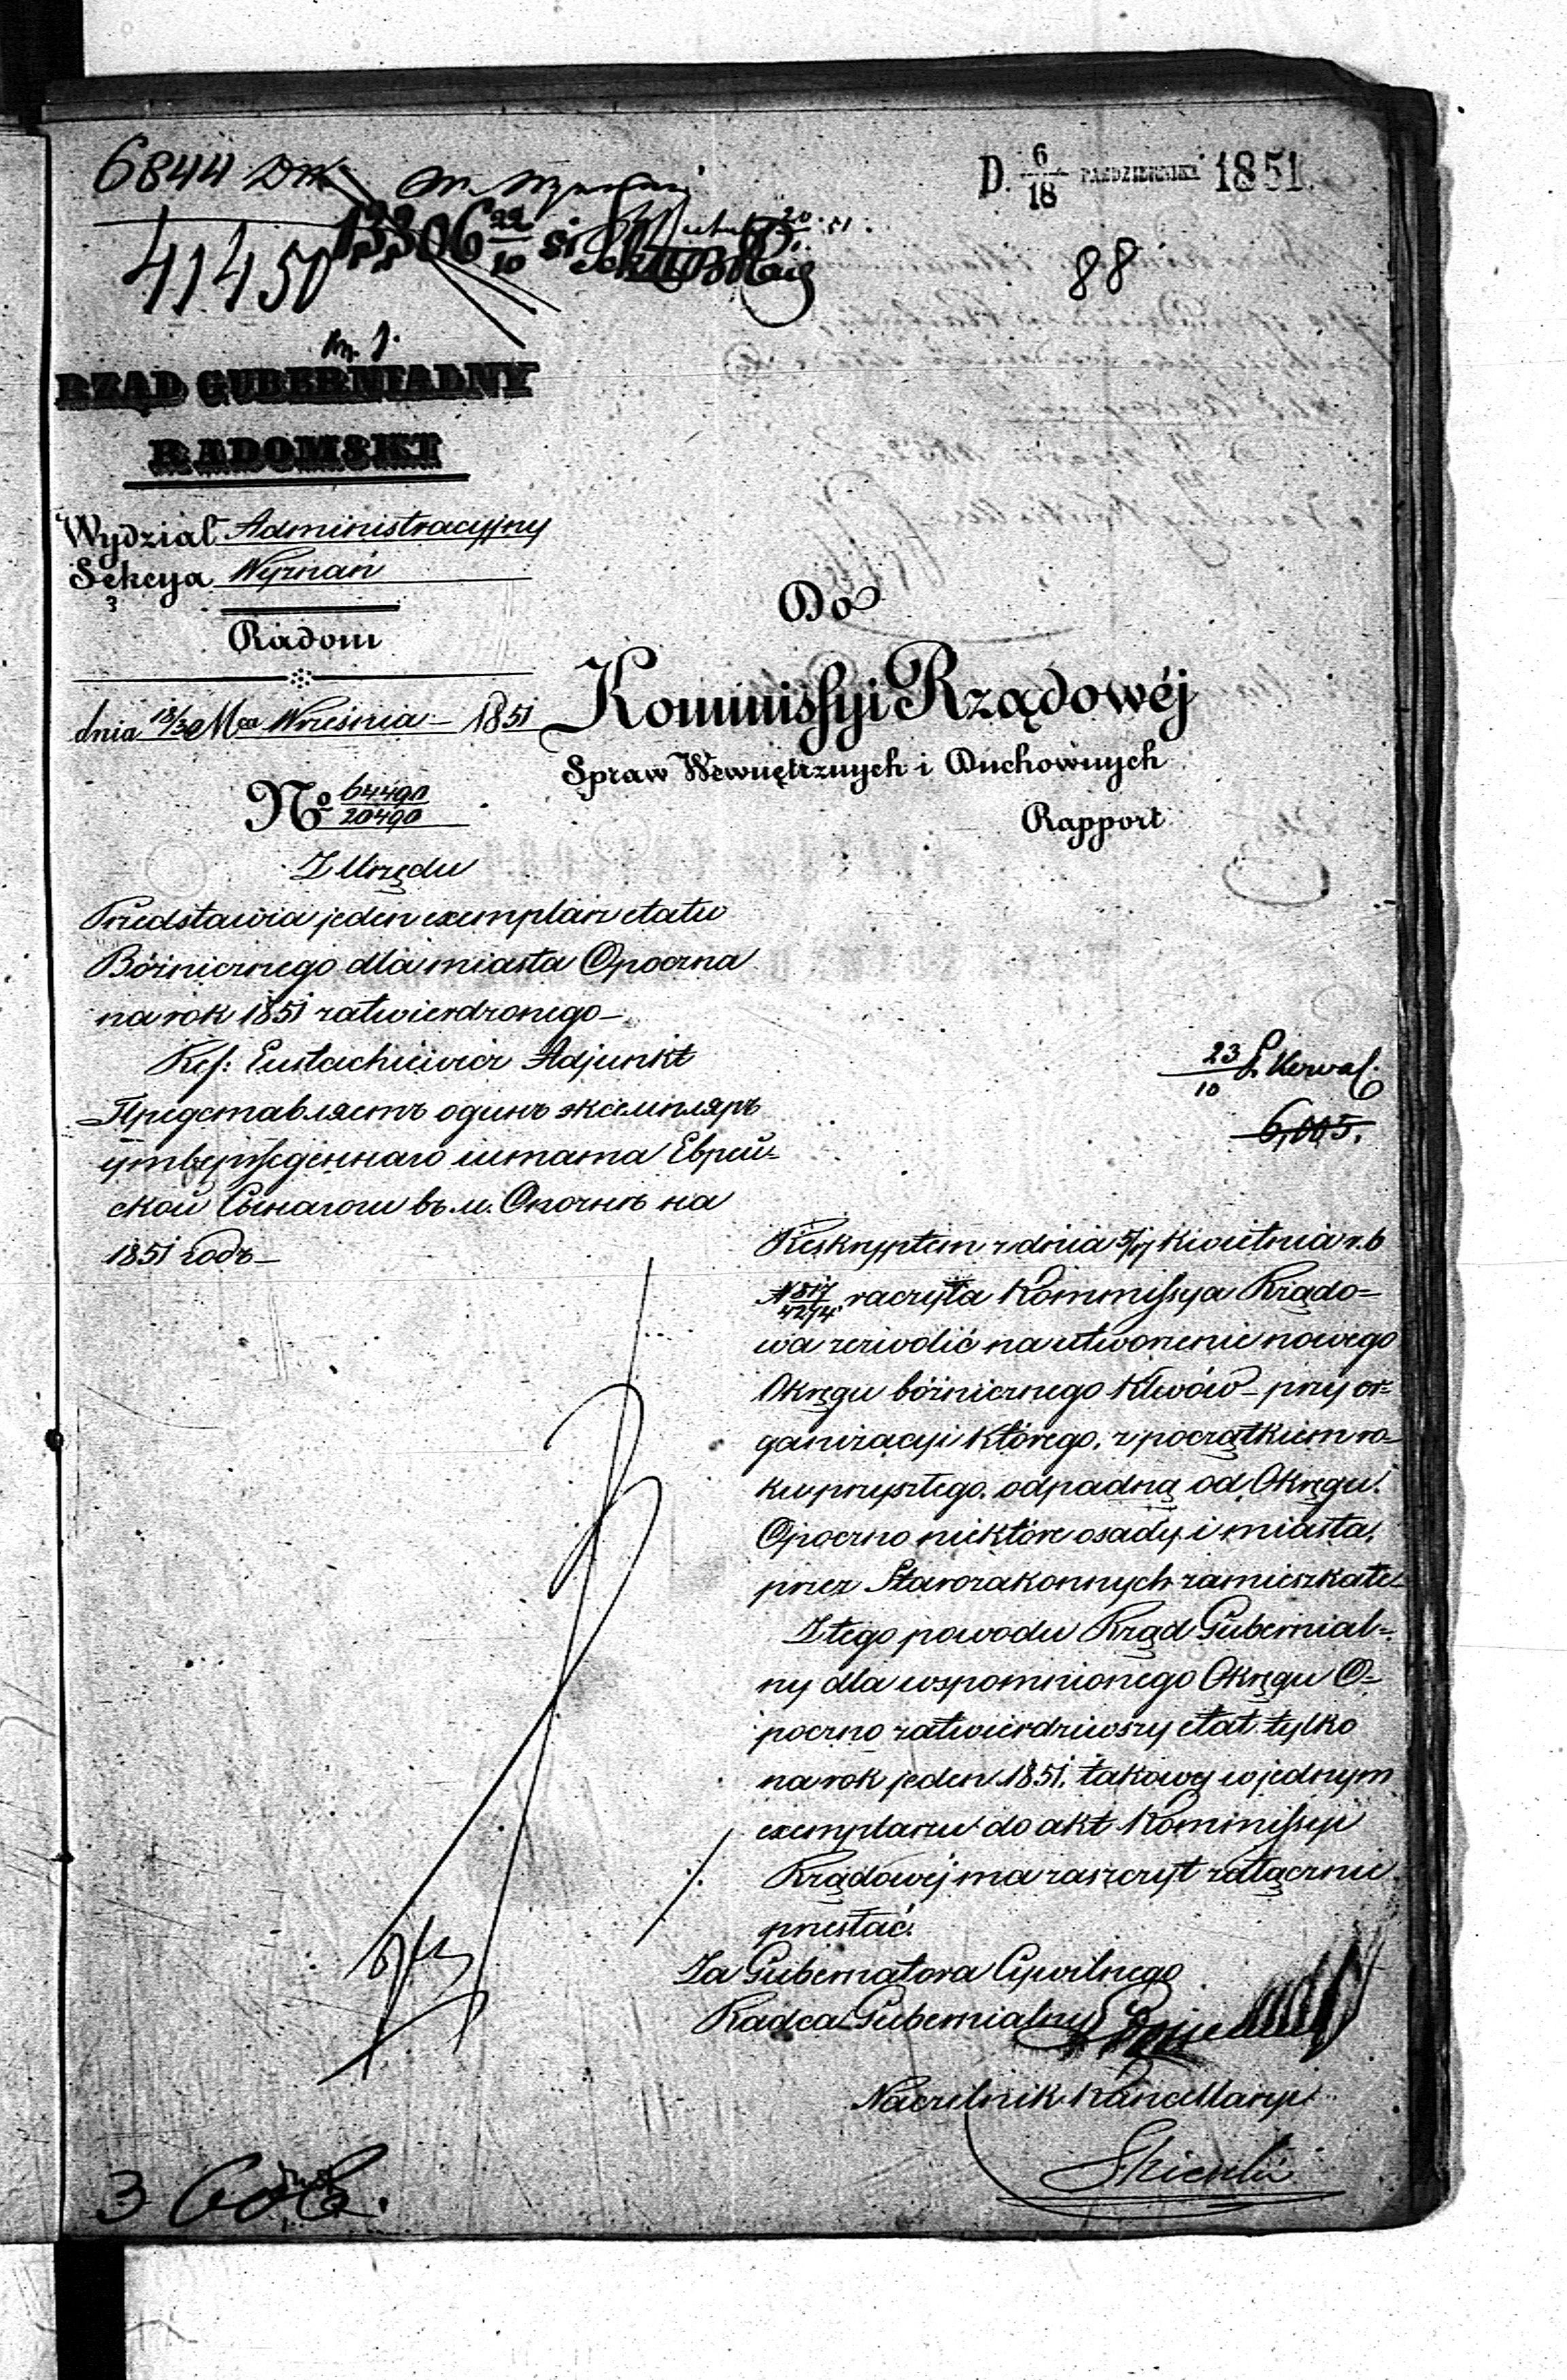 6844
D. 6/18 PAŹDZIERNIKA 1851.
13306 22/10 51
41450
88
RZĄD GUBERNIALNY
RADOMSKI
Wydział Administracyjny
Sekcya Wyznań
Radom
dnia 18/30 Mca Września 1851
No 64490/20490
Do
Kommissyi Rządowéj
Spraw Wewnętrznych i Duchownych
Rapport
Z Urzędu
Przedstawia jeden exemplarz etatu
Bóżnicznego dla miasta Opoczna
na rok 1851 zatwierdzonego
Ref: Eustachiewicz Adjunkt
Представляетъ одинъ экземпляръ
утвержденнаго штата Еврей-
ской Сынагоги въ м. Опочнѣ на
1851 годъ
23/10
6,005.
Reskryptem z dnia 5/17 Kwietnia r. b
N 817/4274 raczyła Kommissya Rządo=
wa zezwolić na utworzenie nowego
Okręgu bóżnicznego Klwów – przy or=
ganizacyi którego, z początkiem ro=
ku przyszłego, odpadną od Okręgu
Opoczno niektóre osady i miasta,
przez Starozakonnych zamieszkałe
Z tego powodu Rząd Gubernial=
ny dla wspomnionego Okręgu O=
poczno zatwierdziwszy etat tylko
na rok jeden 1851, takowy w jednym
exemplarzu do akt Kommissyi
Rządowéj ma zaszczyt załącznie
przesłać.
Za Gubernatora Cywilnego
Radca Gubernialny
Naczelnik Kancellaryi
3